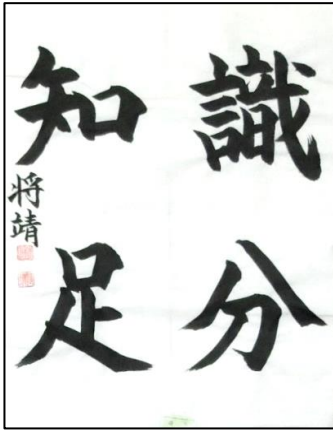 識分
知足
将靖